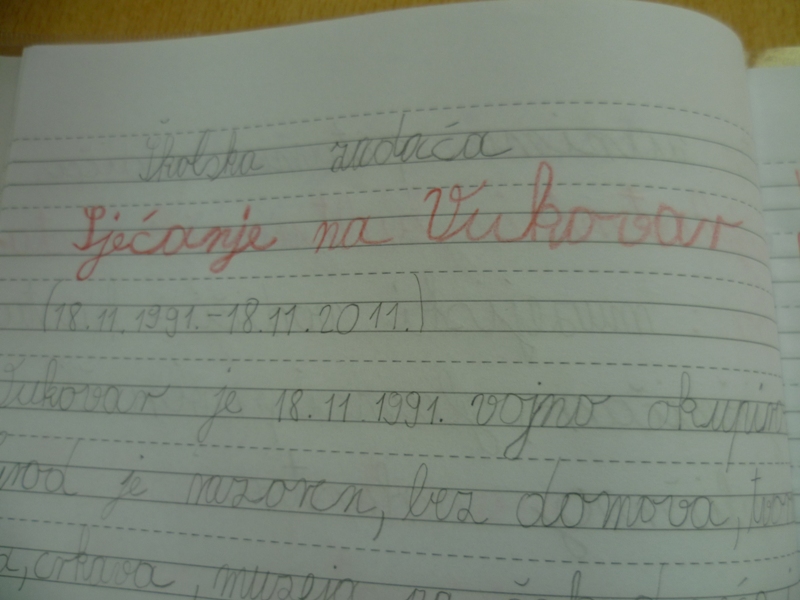 Školska zadaća
Sjećanje na Vukovar
(18.11.1991.-18.11.2011.)
Vukovar je 18.11.1991. vojno
je razoren, bez domova,
crkava, muzeja